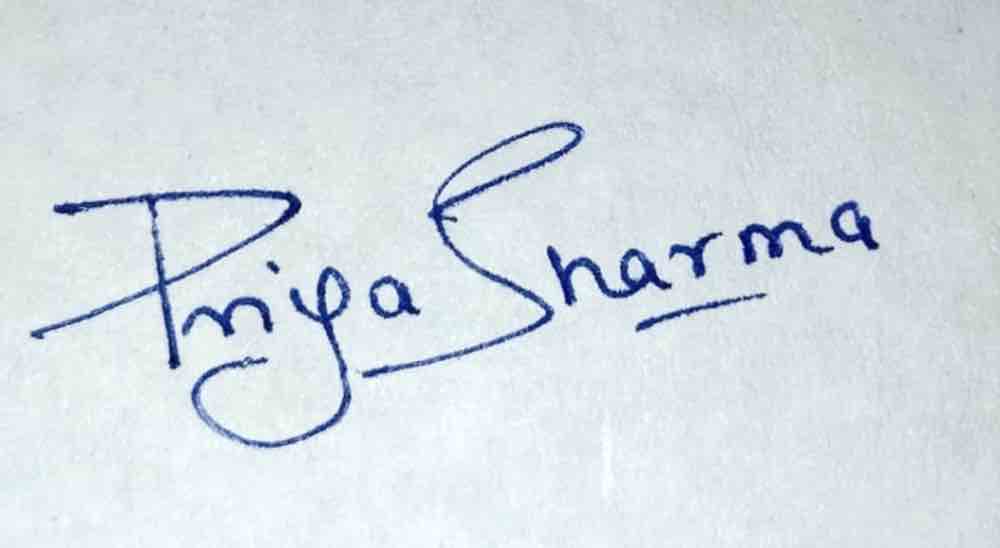 Priya Sharma